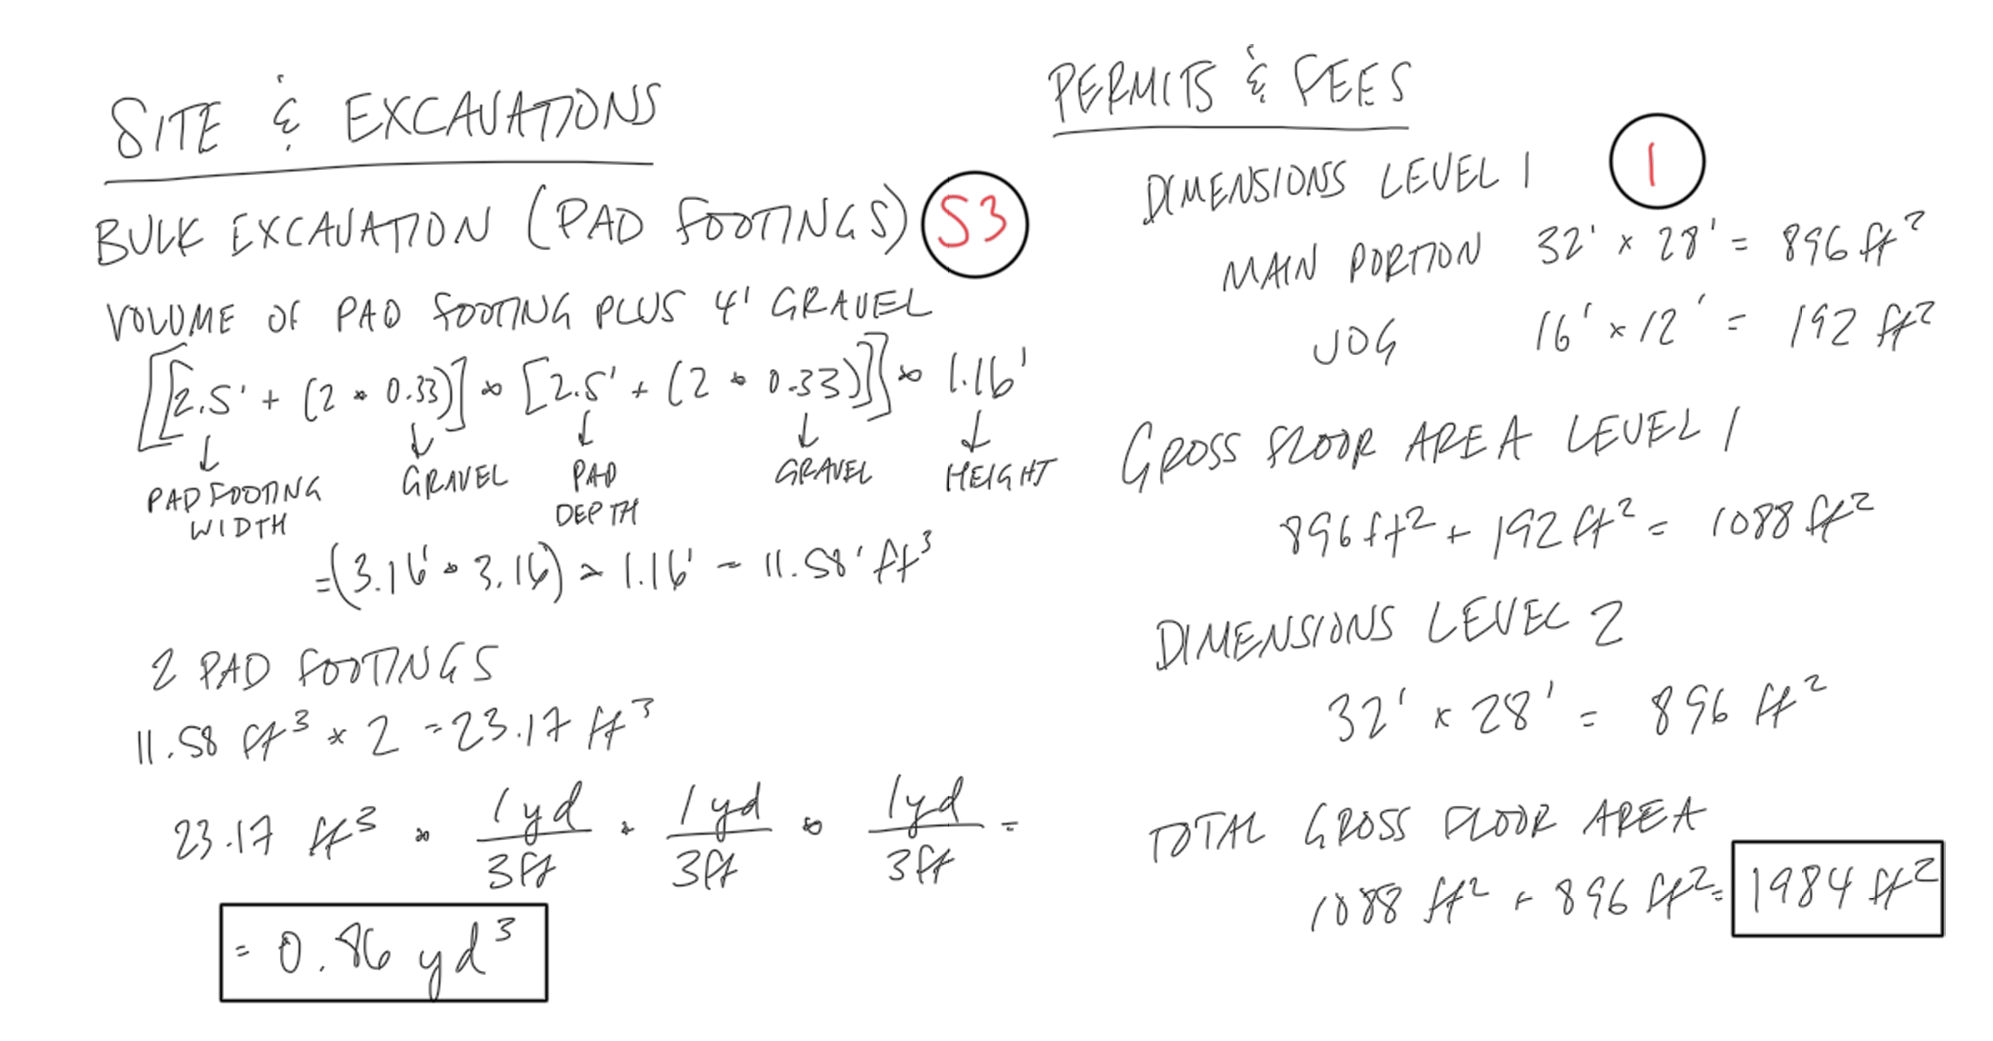 SITE & EXCAVATIONS
BULK EXCAVATION (PAD FOOTINGS) S3
VOLUME OF PAD FOOTING PLUS 4' GRAVEL
[[2.5' + (2 * 0.33)] * [2.5' + (2 * 0.33)]] * 1.16'
PAD FOOTING WIDTH
GRAVEL
PAD DEPTH
GRAVEL
HEIGHT
= (3.16' * 3.16) * 1.16' = 11.58' ft³
2 PAD FOOTINGS
11.58 ft³ * 2 = 23.17 ft³
23.17 ft³ * 1yd/3ft * 1yd/3ft * 1yd/3ft =
= 0.86 yd³
PERMITS & FEES
DIMENSIONS LEVEL 1 1
MAIN PORTION 32' x 28' = 896 ft²
JOG 16' x 12' = 192 ft²
GROSS FLOOR AREA LEVEL 1
896 ft² + 192 ft² = 1088 ft²
DIMENSIONS LEVEL 2
32' x 28' = 896 ft²
TOTAL GROSS FLOOR AREA
1088 ft² + 896 ft² = 1984 ft²